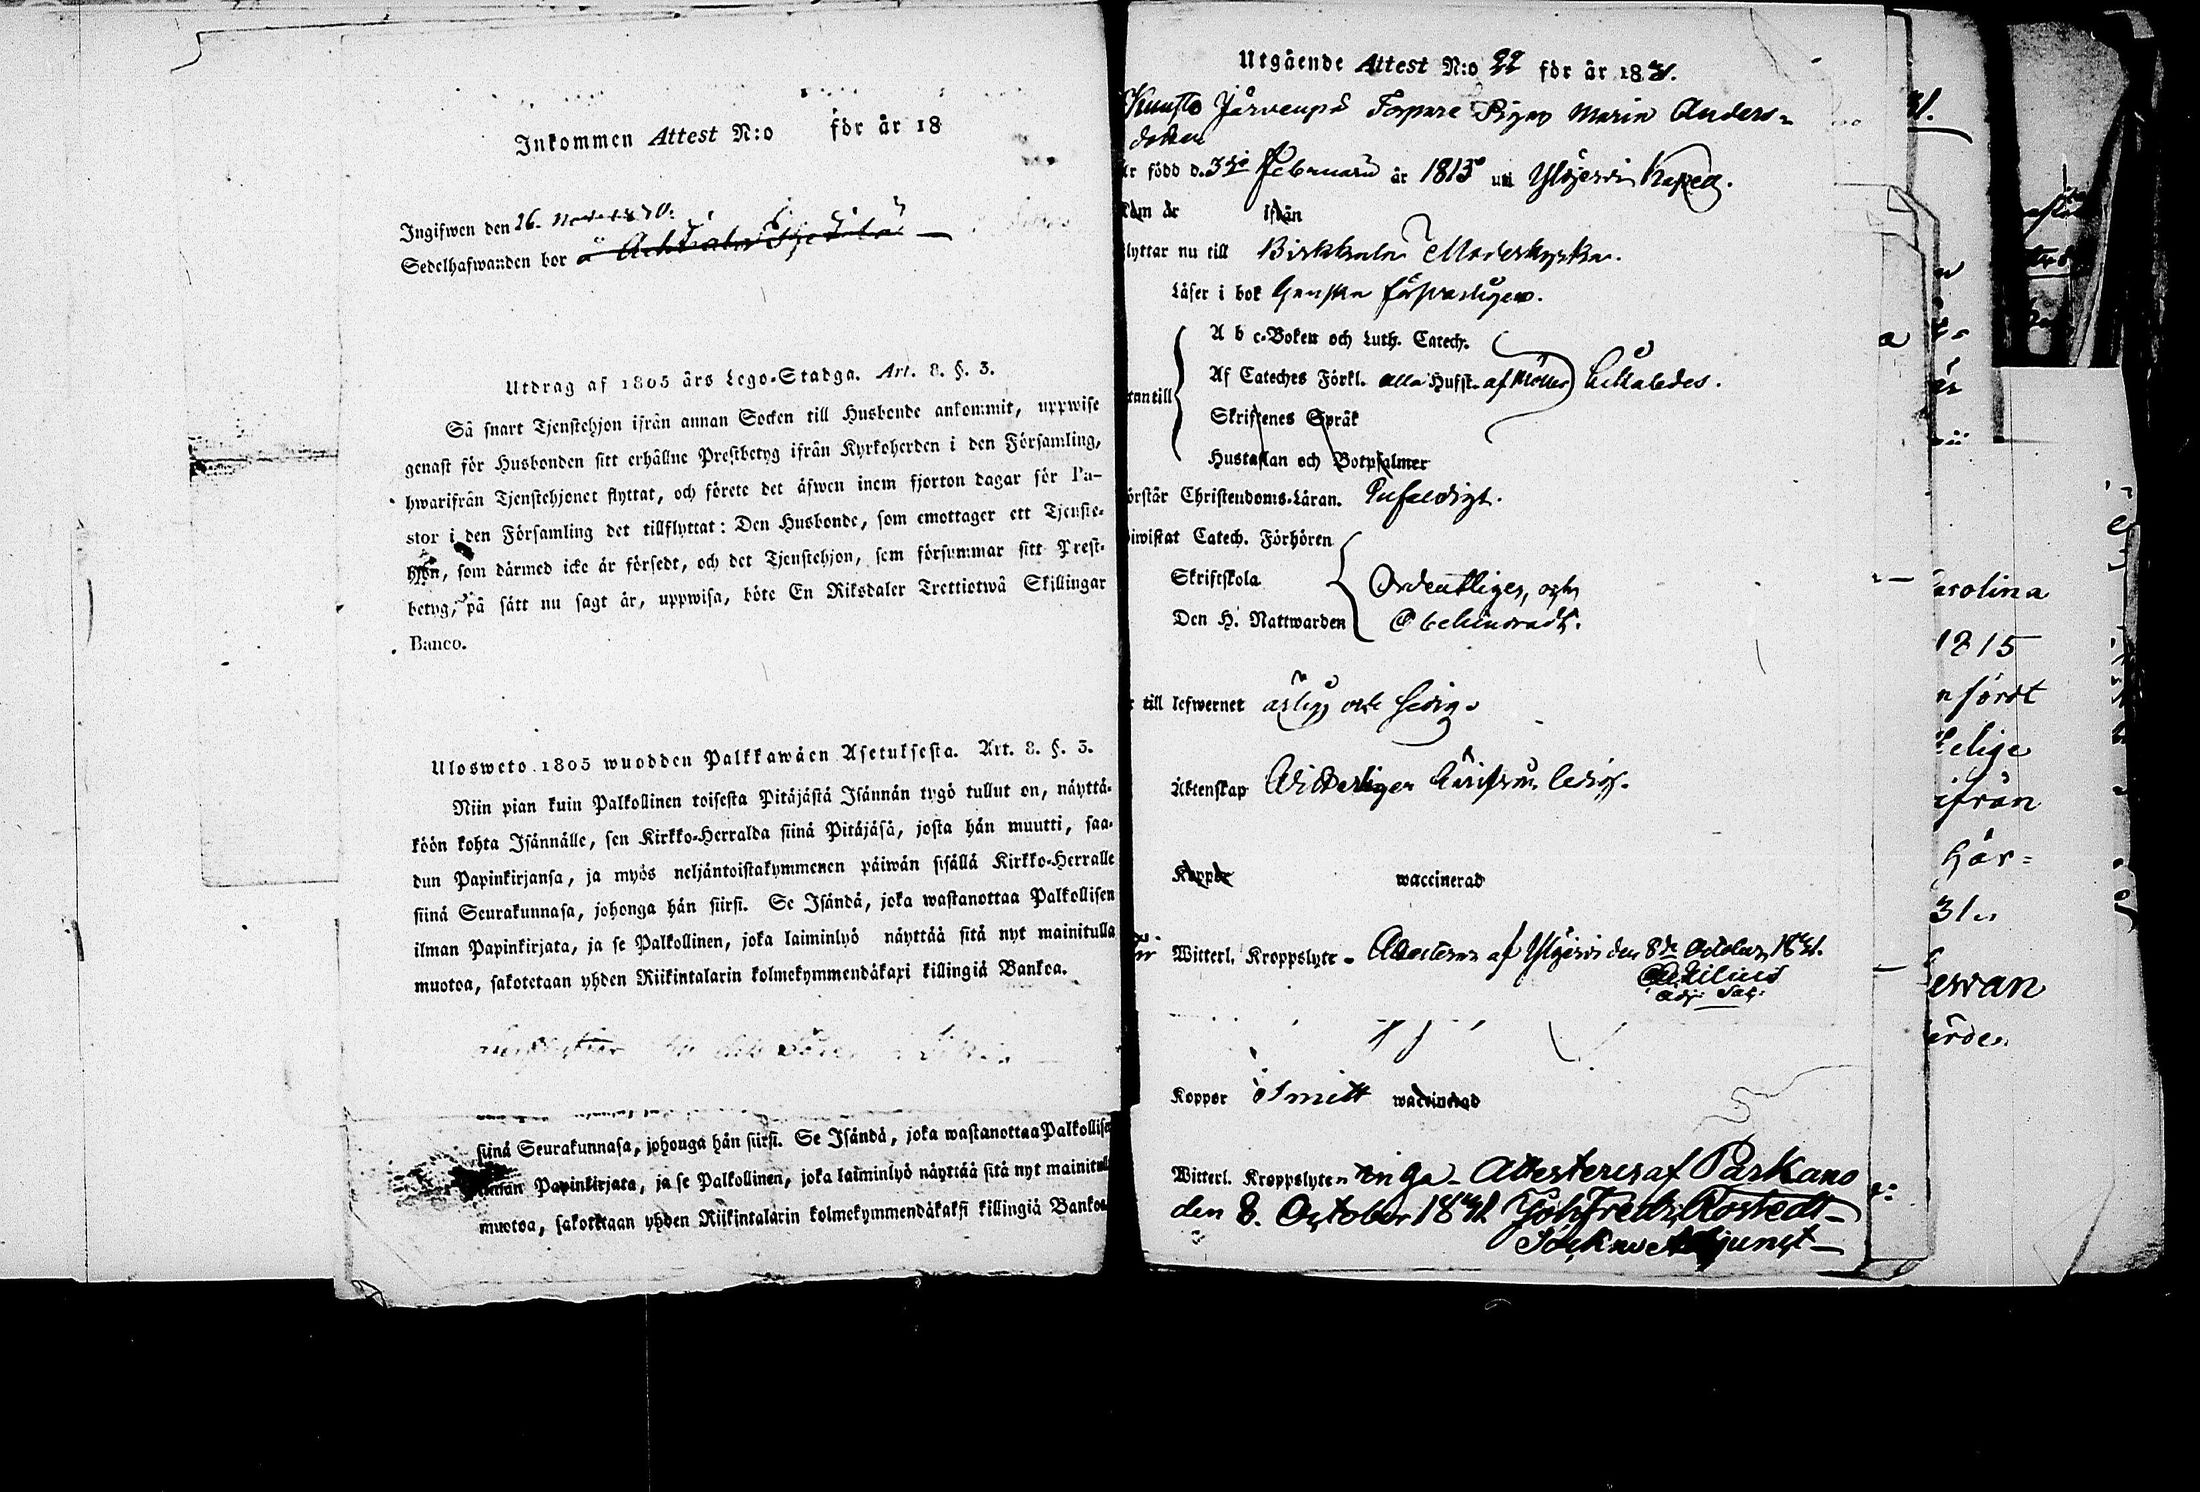 Inkommen Attest N:o för år 18
Ingifwen den 26.
Sedelhafwanden bor å
Utdrag af 1805 års Lego-Stadga. Art. 8. §. 3.
Så snart Tjenstehjon ifrån annan Socken till Husbonde ankommit, uppwise
genast för Husbonden sitt erhållne Prestbetyg ifrån Kyrkoherden i den Församling,
hwarifrån Tjenstehjonet flyttat, och förete det äfwen inom fjorton dagar för Pa-
stor i den Församling det tillflyttat: Den Husbonde, som emottager ett Tjenste-
hjon, som därmed icke är försedt, och det Tjenstehjon, som försummar sitt Prest-
betyg, på sätt nu sagt är, uppwisa, böte En Riksdaler Trettiotwå Skillingar
Banco.
Ulosweto 1805 wuodden Palkkawäen Asetuksesta. Art. 8. §. 3.
Niin pian kuin Palkollinen toisesta Pitäjästä Isännän tygö tullut on, näyttä-
köön kohta Isännälle, sen Kirkko-Herralda siinä Pitäjäsä, josta hän muutti, saa-
dun Papinkirjansa, ja myös neljäntoistakymmenen päiwän sisällä Kirkko-Herralle
siinä Seurakunnasa, johonga hän siirsi. Se Isändä, joka wastanottaa Palkollisen
ilman Papinkirjata, ja se Palkollinen, joka laiminlyö näyttää sitä nyt mainitulla
muotoa, sakotetaan yhden Riikintalarin kolmekymmendäkaxi killingiä Bankoa.
siinä Seurakunnasa, johonga hän siirsi. Se Isändä, joka wastanottaa Palkollise
ilman Papinkirjata, ja se Palkollinen, joka laiminlyö näyttää sitä nyt mainitull
muotoa, sakotetaan yhden Riikintalarin kolmekymmendäkaksi killingiä Bankoa
Utgående Attest N:o 22 för år 1831.
Järvenpä Torpare Pigan Maria Anders-
dotter
är född d. 3 Februarii år 1813 uti Ylöjervi Kapell.
ifrån
lyttar nu till Birkkala Moderkyrka.
Läser i bok Ganska försvarligen.
A b c-Boken och Luth. Catech.
Af Cateches Förkl. alla Hufst. af Möller
utantill
Skriftenes Språk
Hustaflan och Botpsalmer
örstår Christendoms-Läran. Enfaldigt.
biwistat Catech. Förhören
Skriftskola
Ordentligen, och
Den H. Nattwarden obehindradt.
r till lefwernet ärlig och sedig.
Äktenskap Witterligen härifrån ledig.
Koppor waccinerad
Witterl. Kroppslyte - Attesterar af Ylöjervi den 8de October 1831.
Adj: Sac:
Koppor Smitt waccinerad
Witterl. Kroppslyte - inga - Attesteras af Parkano
den 8. October 1831 Joh Fredr. Rostedt
Sockne Adjunct
31.
arolina
1815
n fördt
elige
ifrån
här=
31.
ewan
örde